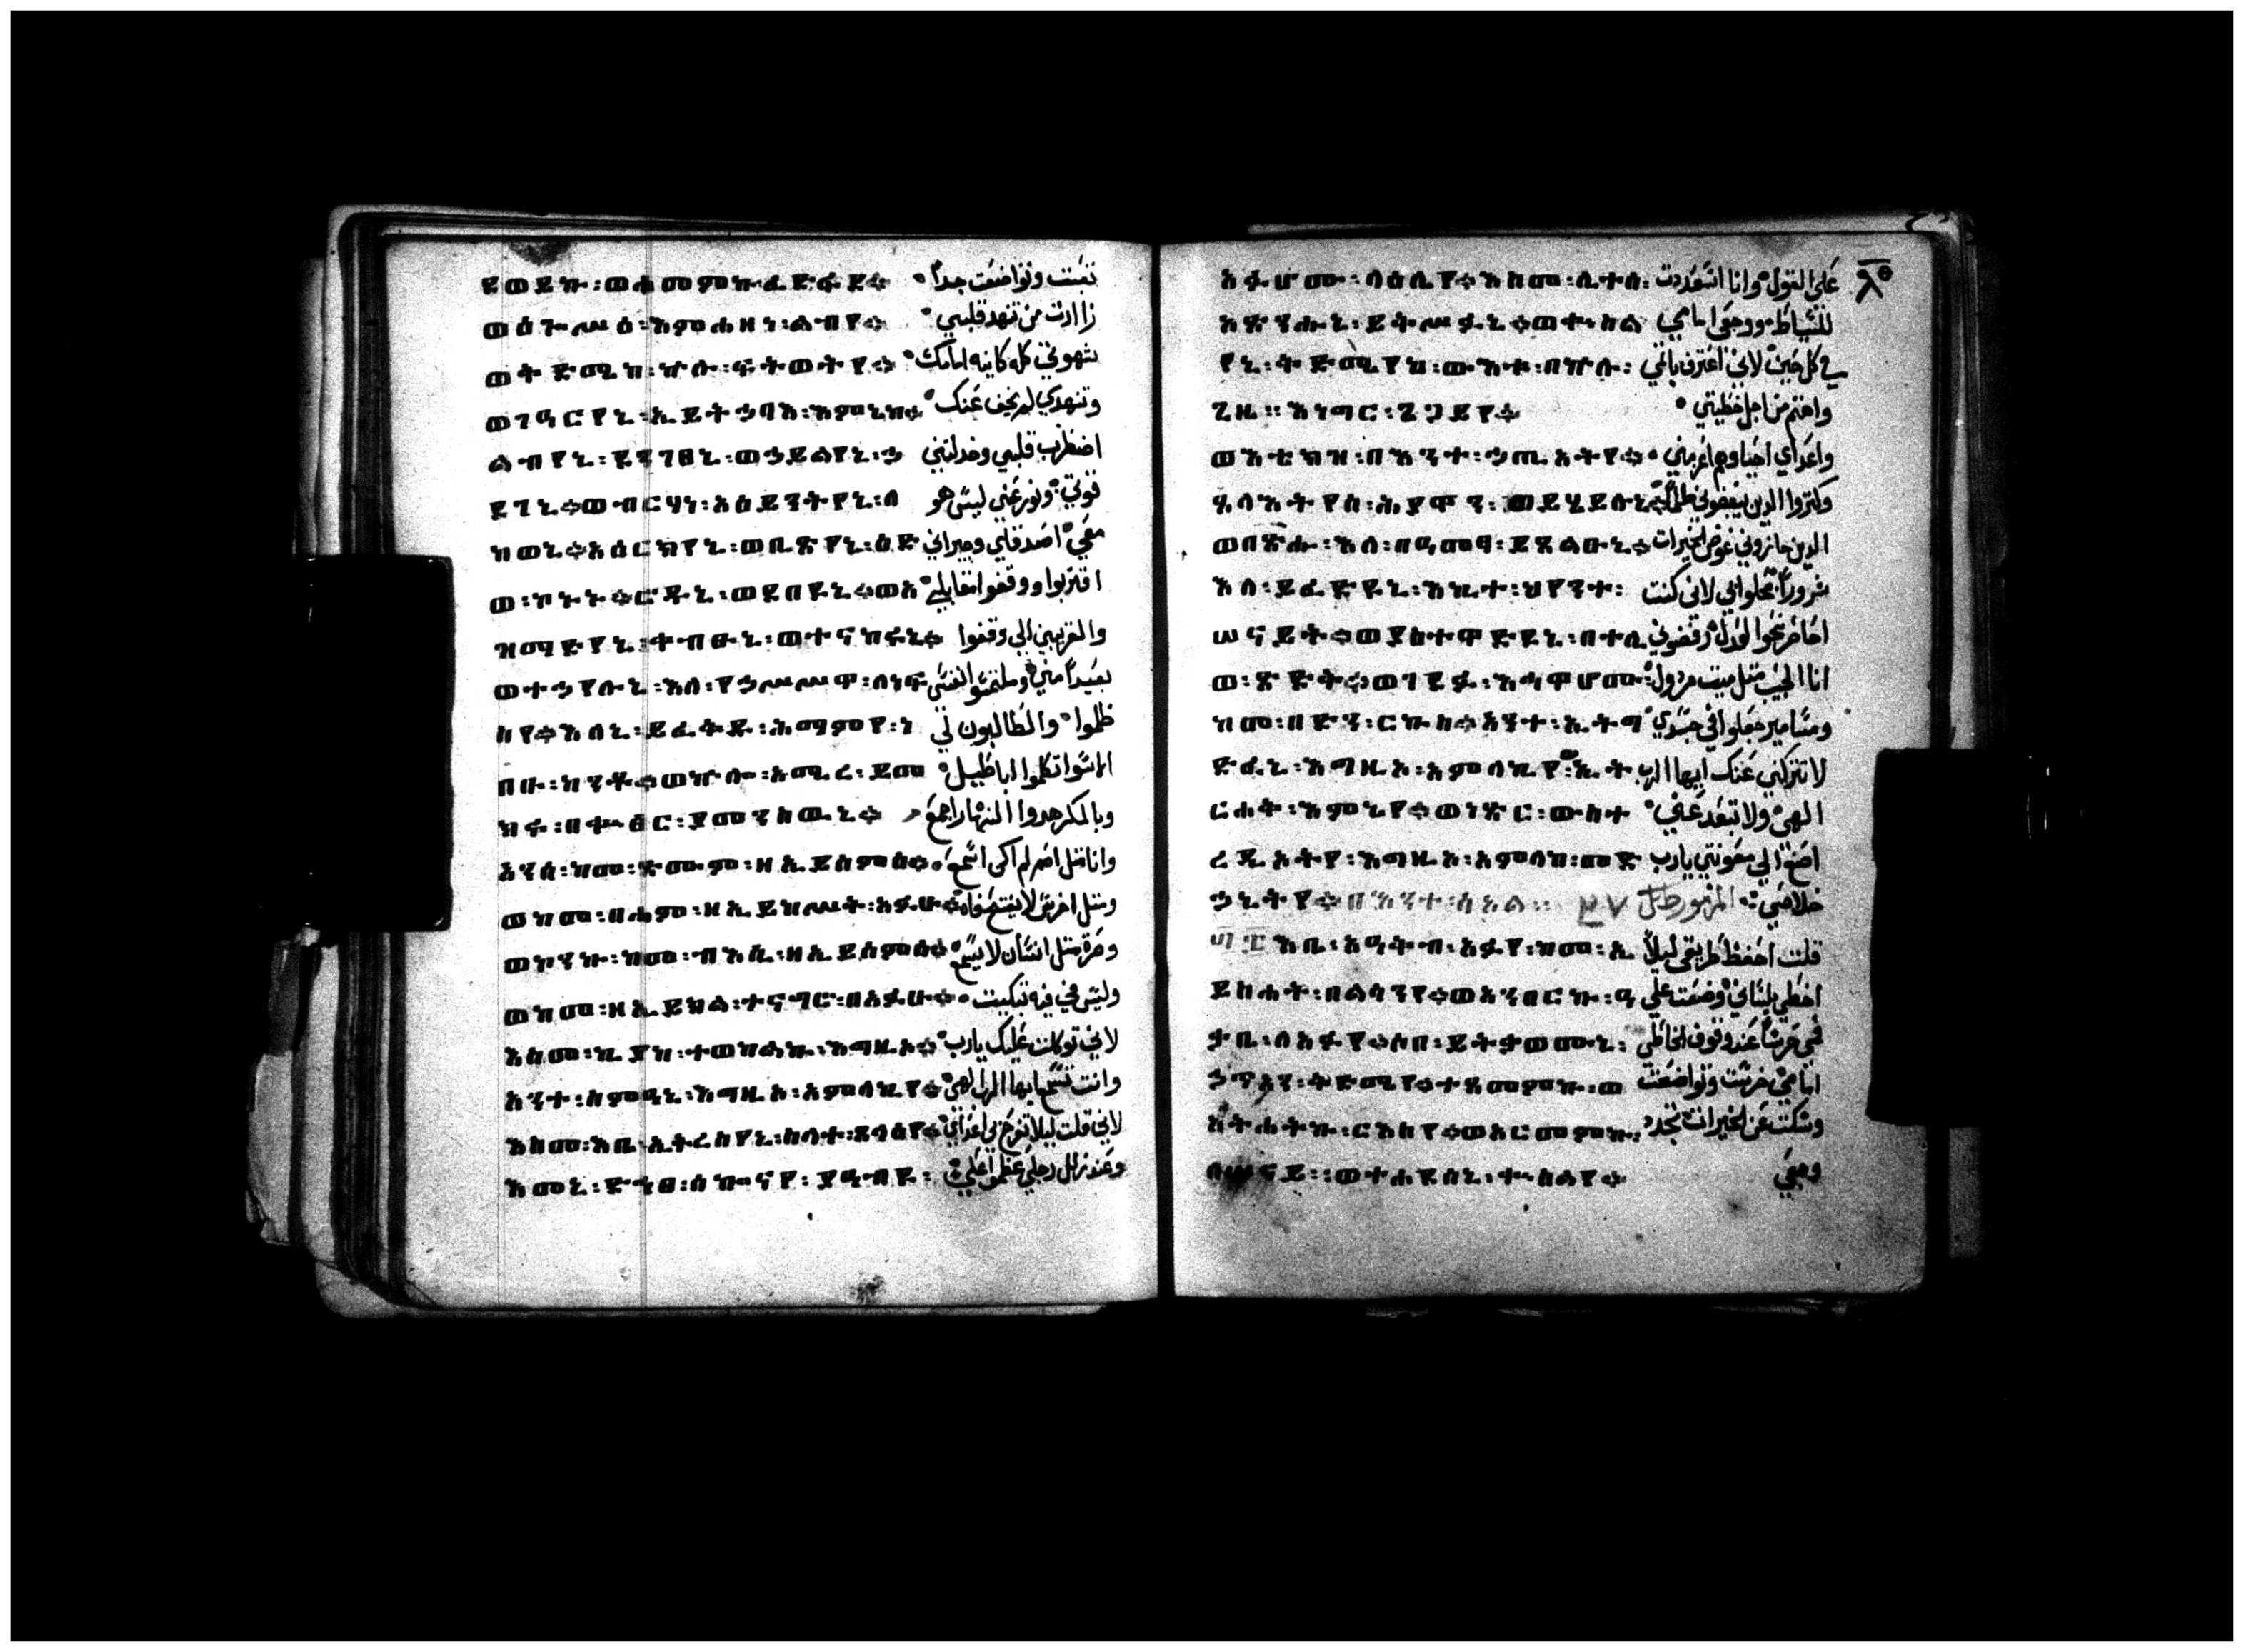 ደወይኩ፡ወሐመምኩ፡ፈድፋደ። تعبت وتواضعت جداً
ወዕጐሥዕ፡እምሐዘነ፡ልብየ። زاارت من تنهد قلبي
ወቅድሜከ፡ኵሉ፡ፍትወትየ። شهوتي كله كاينه امامك
ወገዓርየኒ፡ኢይትኃባእ፡እምኔከ። وتنهدي لم يخف عنك
ልብየኒ፡ደንገፀኒ፡ወኃይልየኒ፡ኃ اضطرب قلبي وخدلتني
ደገኒ። ወብርሃነ፡አዕይንትየኒ፡ለ قوتي ونور عني ليس هو
ከወኒ። አዕርክትየኒ፡ወቢጽየኒ፡ዕድ معي اصدقاي وجيراني
ወ፡ኮኑ። ሮዱኒ፡ወደበዩኒ። ወአ اقتربوا ووقفوا مقابلي
ዝማድየኒ፡ቀብጹኒ፡ወተናከሩኒ። والقريبين الي وقفوا
ወተኃየሉኒ፡እለ፡የኃሥሥዋ፡ለነፍ بعيداً مني وملتمسوا نفسي
ስየ። እለኒ፡ይፈቅዱ፡ሕማምየ፡ነ ظلموا والطالبون لي
በቡ፡ከንቶ። ወኵሎ፡አሚረ፡ይመ الاسوا تكلموا اباطيل
ክሩ፡በቍዔር፡ያመንስዉኒ። وبالمكر هدوا النهار اجمع
አንሰ፡ከመ፡ጽሙም፡ዘኢይሰምዕ። وانا مثل اصم لم اكن اسمع
ወከመ፡በሐም፡ዘኢይከሥት፡አፉሁ። ومثل اخرس لا يفتح فاه
ወኮንኩ፡ከመ፡ብእሲ፡ዘኢይሰምዕ። وصرت مثل انسان لا يسمع
ወከመ፡ዘኢይክል፡ተናግሮ፡በአፉሁ። وليس في فيه تبكيت
እስመ፡ኪያከ፡ተወከልኩ፡እግዚኦ። لاني توكلت عليك يارب
አንተ፡ስምዓኒ፡እግዚኦ፡አምላኪየ። وانت تسمع ايها الرب الهي
እስመ፡እቤ፡ኢትረስየኒ፡ስላተ፡ጸላዕትየ። لاني قلت ليلا تفرح بي اعداي
እመኒ፡ድኅፀ፡ሰኰናየ፡ያዓብዩ፡ وعند زلل رجلي عظموا علي
አፉሆሙ፡ላዕሌየ። እስመ፡ሊተሰ፡ على القول وانا استعددت
አጽንሑኒ፡ይቅሥፉኒ። ወቍስል للسياط ووجعي امامي
የኒ፡ቅድሜየ፡ውእቱ፡በኵሉ፡ في كل حين لاني اعترف باثمي
ጊዜ። እነግር፡ጌጋይየ። واهتم من اجل خطيتي
ወእቴክዝ፡በእንተ፡ኃጢአትየ። واعداي احيا وهم اعز مني
ጸላእትየሰ፡ሕያዋን፡ወይኄይሉኒ። وكثروا الدين يبغضوني ظلماً
ወበዝኁ፡እለ፡በዓመፃ፡ይጸልዑኒ። الدين جازوني عوض الخيرات
እለ፡ይፈድዩኒ፡እኪተ፡ህየንተ፡ شروراً لاني كنت
ሠናይት። ወያስተቃድዩኒ፡በተሊ
ወ፡ጽድቅ። ወገደፉ፡እኅዋሆሙ፡ انا الحبيب مثل ميت مردول
ከመ፡በድን፡ርኩስ። አንተ፡ኢትግ ومسامير جعلوا في جسدي
ድፈኒ፡እግዚእ፡አምላኪየ፡ኢት لا تتركني عنك ايها الرب
ርሐቅ፡እምኔየ። ወነጽር፡ውስተ الهي ولا تبعد عني
ረዲኦትየ፡እግዚእ፡አምላከ፡መድ اصغ الي معونتي يارب
ኃኒትየ። በእንተ፡ስእል። خلاصي المزمور
፴፰ እቤ፡አዓቅብ፡አፉየ፡ከመ፡ኢ قلت احفظ طريقي ليلاً
ይስሐት፡በልሳንየ። ወአንበርኩ፡ዓ اخطي بلساني وضعت علي
ቃቤ፡ለአፉየ፡ሶበ፡ይትቃወሙኒ፡ فمي حرساً عند وقوف الخاطي
ኃጥአን፡ቅድሜየ። ተጸመምኩ፡ወ امامي خرست وتواضعت
አትሐትኩ፡ርእስየ፡ወአርመምኩ፡ وسكت عن الخيرات تجدد
ለሠናይ። ወተሐደሰኒ፡ቍስልየ። وجعي